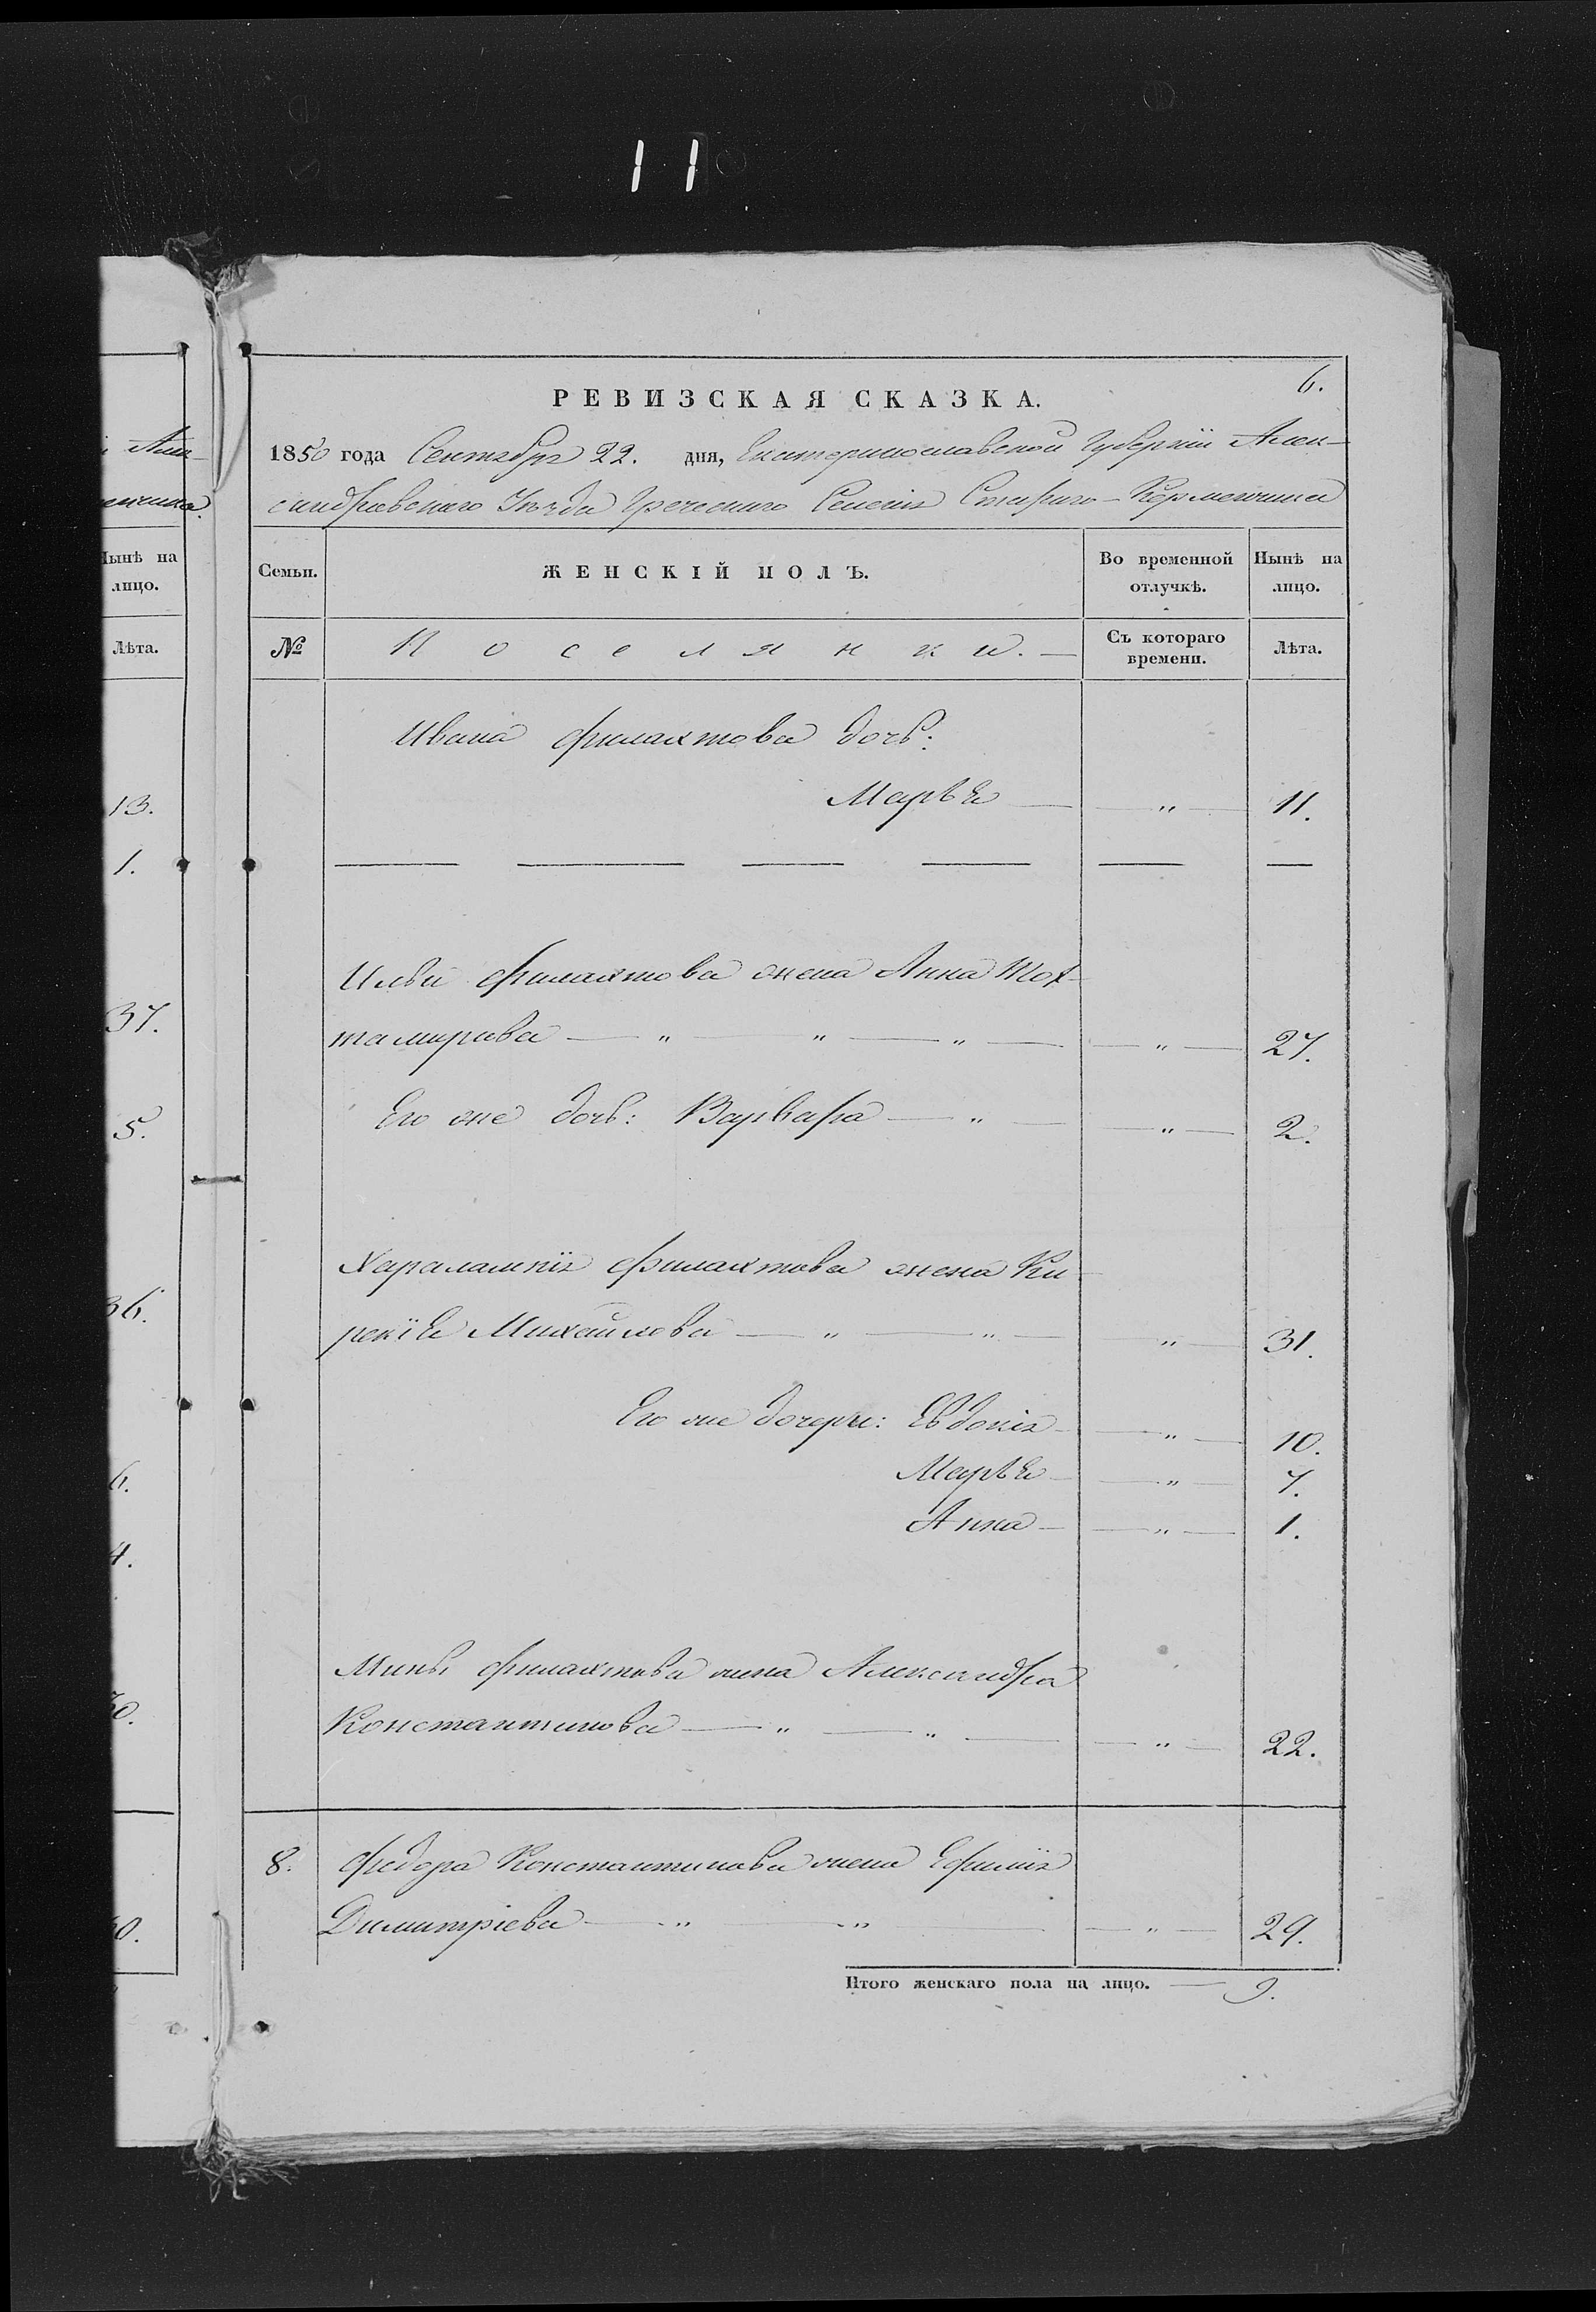 11
6.
РЕВИЗСКАЯ СКАЗКА.
1850 года Сентября 22. дня, Екатеринославской Губерніи Алек-
сандровскаго Уѣзда Греческаго Селенія Стараго-Керменчика
Семьи. ЖЕНСКІЙ ПОЛЪ. Во временной отлучкѣ. Нынѣ на лицо.
№ Поселянки. — Съ котораго времени. Лѣта.
Ивана Филахтова дочь:
Марья — — „ — 11.
Ильи Филахтова жена Анна Тох-
тамирова — „ — „ — „ — — „ — 27.
Его же дочь: Варвара — „ — — „ — 2.
Харалампія Филахтова жена Ки-
рекія Михайлова — „ — „ — „ — 31.
Его же дочери: Евдокія — — „ — 10.
Марья — — „ — 7.
Анна — — „ — 1.
Мины Филахтова жена Александра
Константинова — „ — „ — — „ — 22.
8. Федора Константинова жена Ефимія
Димитріева — „ — „ — — „ — 29.
Итого женскаго пола на лицо. — 9.
Нынѣ на
лицо.
Лѣта.
13.
1.
37.
5.
36.
6.
4.